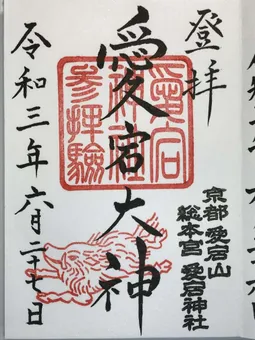 登拝
愛宕大神
愛宕神社参拝験
京都 愛宕山
総本宮 愛宕神社
令和三年六月二十七日